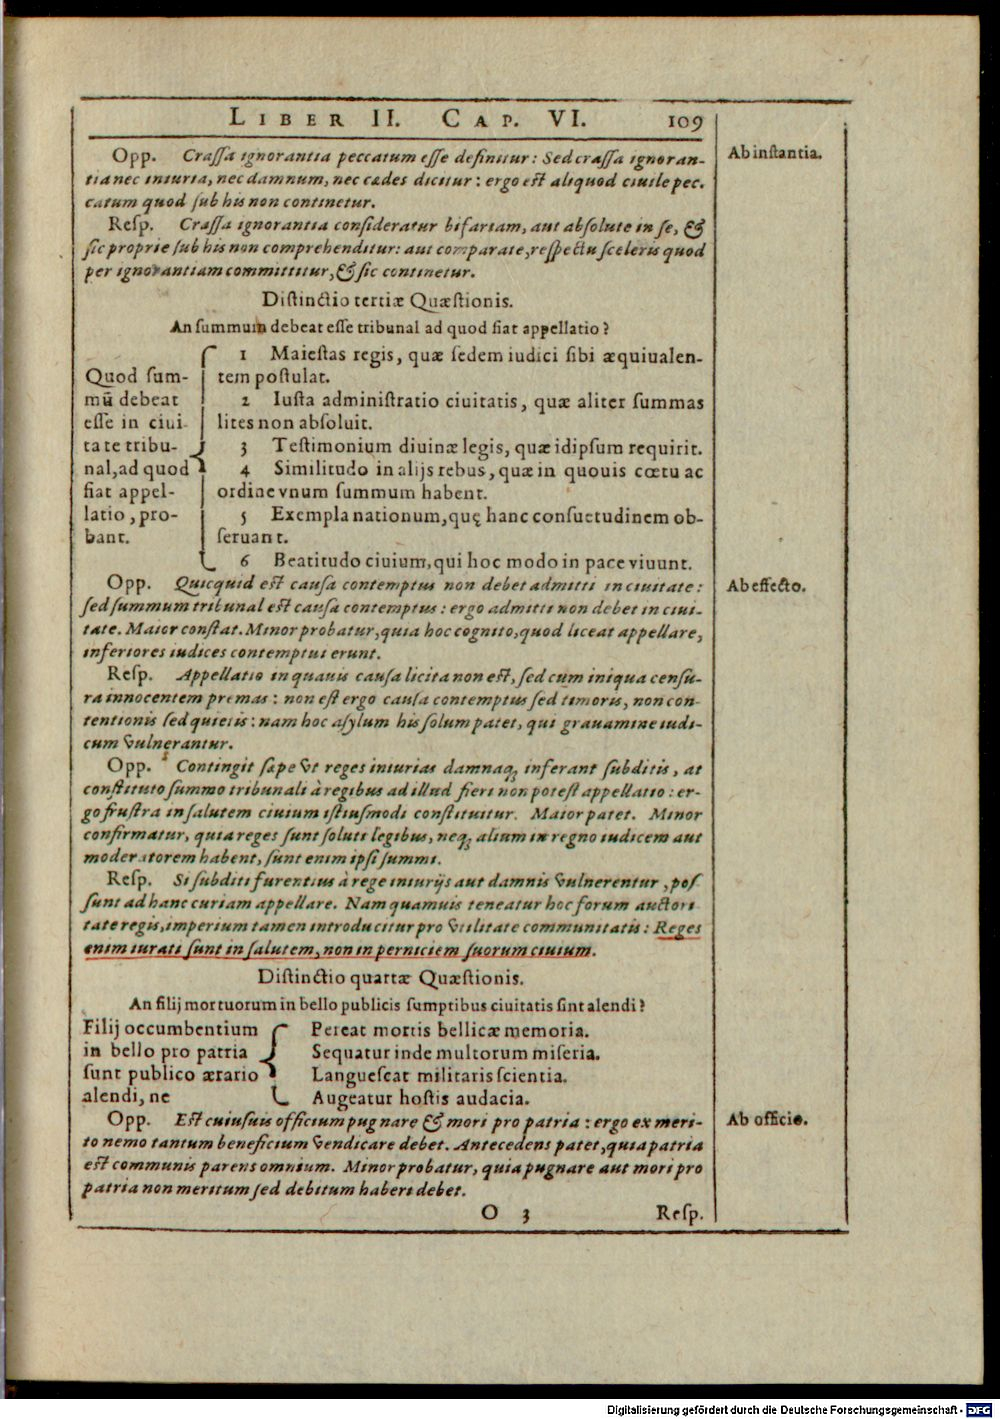 LIBER II. CAP. VI. 109
Opp. Crassa ignorantia peccatum esse definitur: Sed crassa ignoran-
tia nec iniuria, nec damnum, nec cædes dicitur: ergo est aliquod ciuile pec-
catum quod sub his non continetur.
Ab instantia.
Resp. Crassa ignorantia consideratur bifariam, aut absolute in se, &
sic proprie sub his non comprehenditur: aut comparate, respectu sceleris quod
per ignorantiam committitur, & sic continetur.
Distinctio tertiæ Quæstionis.
An summum debeat esse tribunal ad quod fiat appellatio?
Quod sum-
mū debeat
esse in ciui
tate tribu-
nal, ad quod
fiat appel-
latio, pro-
bant.
1 Maiestas regis, quæ sedem iudici sibi æquiualen-
tem postulat.
2 Iusta administratio ciuitatis, quæ aliter summas
lites non absoluit.
3 Testimonium diuinæ legis, quæ idipsum requirit.
4 Similitudo in alijs rebus, quæ in quouis cœtu ac
ordine vnum summum habent.
5 Exempla nationum, quę hanc consuetudinem ob-
seruant.
6 Beatitudo ciuium, qui hoc modo in pace viuunt.
Opp. Quicquid est causa contemptus non debet admitti in ciuitate:
sed summum tribunal est causa contemptus: ergo admitti non debet in ciui-
tate. Maior constat. Minor probatur, quia hoc cognito, quod liceat appellare,
inferiores iudices contemptui erunt.
Ab effecto.
Resp. Appellatio in quauis causa licita non est, sed cum iniqua censu-
ra innocentem premas: non est ergo causa contemptus sed timoris, non con-
tentionis sed quietis: nam hoc asylum his solum patet, qui grauamine iudi-
cum vulnerantur.
Opp. Contingit sæpe vt reges iniurias damnaq; inferant subditis, at
constituto summo tribunali à regibus ad illud fieri non potest appellatio: er-
go frustra in salutem ciuium istiusmodi constituitur. Maior patet. Minor
confirmatur, quia reges sunt soluti legibus, neq; alium in regno iudicem aut
moderatorem habent, sunt enim ipsi summi.
Resp. Si subditi furentius à rege iniurijs aut damnis vulnerentur, pos
sunt ad hanc curiam appellare. Nam quamuis teneatur hoc forum auctori
tate regis, imperium tamen introducitur pro vtilitate communitatis: Reges
enim iurati sunt in salutem, non in perniciem suorum ciuium.
Distinctio quartæ Quæstionis.
An filij mortuorum in bello publicis sumptibus ciuitatis sint alendi?
Filij occumbentium
in bello pro patria
sunt publico ærario
alendi, ne
Pereat mortis bellicæ memoria.
Sequatur inde multorum miseria.
Languescat militaris scientia.
Augeatur hostis audacia.
Opp. Est cuiusuis officium pugnare & mori pro patria: ergo ex meri-
to nemo tantum beneficium vendicare debet. Antecedens patet, quia patria
est communis parens omnium. Minor probatur, quia pugnare aut mori pro
patria non meritum sed debitum haberi debet.
Ab officio.
O 3 Resp.
Digitalisierung gefördert durch die Deutsche Forschungsgemeinschaft - DFG